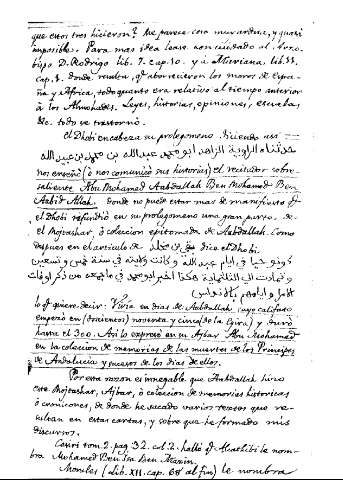 que estos tres hicieron? Me parece cosa muy ardua, y quasi
imposible. Para mas idea lease con cuidado al Arzo-
bispo D. Rodrigo lib. 7. cap. 10. y à Mariana lib. 11.
cap. 1. donde cuenta, qe. aborrecieron los moros de Espa-
ña y Africa, todo quanto era relativo al tiempo anterior
à los Almohades. Leyes, historias, opiniones, escuelas
&c. todo se trastornó.
el Dhobi encabeza su prolegomeno diciendo asi
الراوية الزاهد ابو محمد عبد الله بن محمد بن عبد الله
nos enseñó (ò nos comunicó sus historias) el recitador sobre-
saliente Abu Mohamed Aabdallah Ben Mohamed Ben
Aabid Allah. donde no puede estar mas de manifiesto qe.
el Dhobi refundió en su prolegomeno una gran parte de
el Mojtashar, ò coleccion epitomada de Aabdallah. Como
despues en el articulo de dice el Dhobi.
في ايام عبد الله وكانت ولايته في سنة خمس وتسعين
وتمادت الى الثلثماية هكذا اخبر ابو محمد في ما جمعه من ذكر اوقات
الامرا وايامهم بالاندلس
lo qe. quiere decir: Vivia en dias de Aabdallah cuyo califato
empezó en (doscientos) noventa y cinco (de la Egira) y duró
hasta el 300. Asi lo expresó en su Ajbar Abu Mohamed
en la coleccion de memorias de las muertes de los Principes
de Andalucia y sucesos de los dias de ellos.
Por esta razon es innegable que Aabdallah hizo
este Mojtashar, Ajbar, ò coleccion de memorias historicas
ò cronicones, de donde he sacado varios textos que re-
sultan en estas cartas, y sobre que he formado mis
discursos.
Casiri tom. 2. pag. 32. col. 2. halló qe. Alcathibi le nom-
bra Mohamed Ben Isa Ben Mazin.
Morales (lib. XII. cap. 68 al fin) le nombra